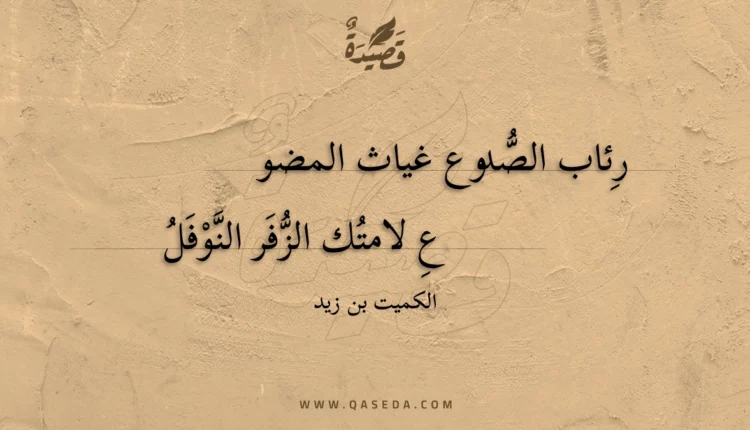 قَصِيْدَةٌ
رِئاب الصُّدوع غياث المضو
عِ لامتُك الزُّفَر النَّوْفَلُ
الكميت بن زيد
WWW.QASEDA.COM